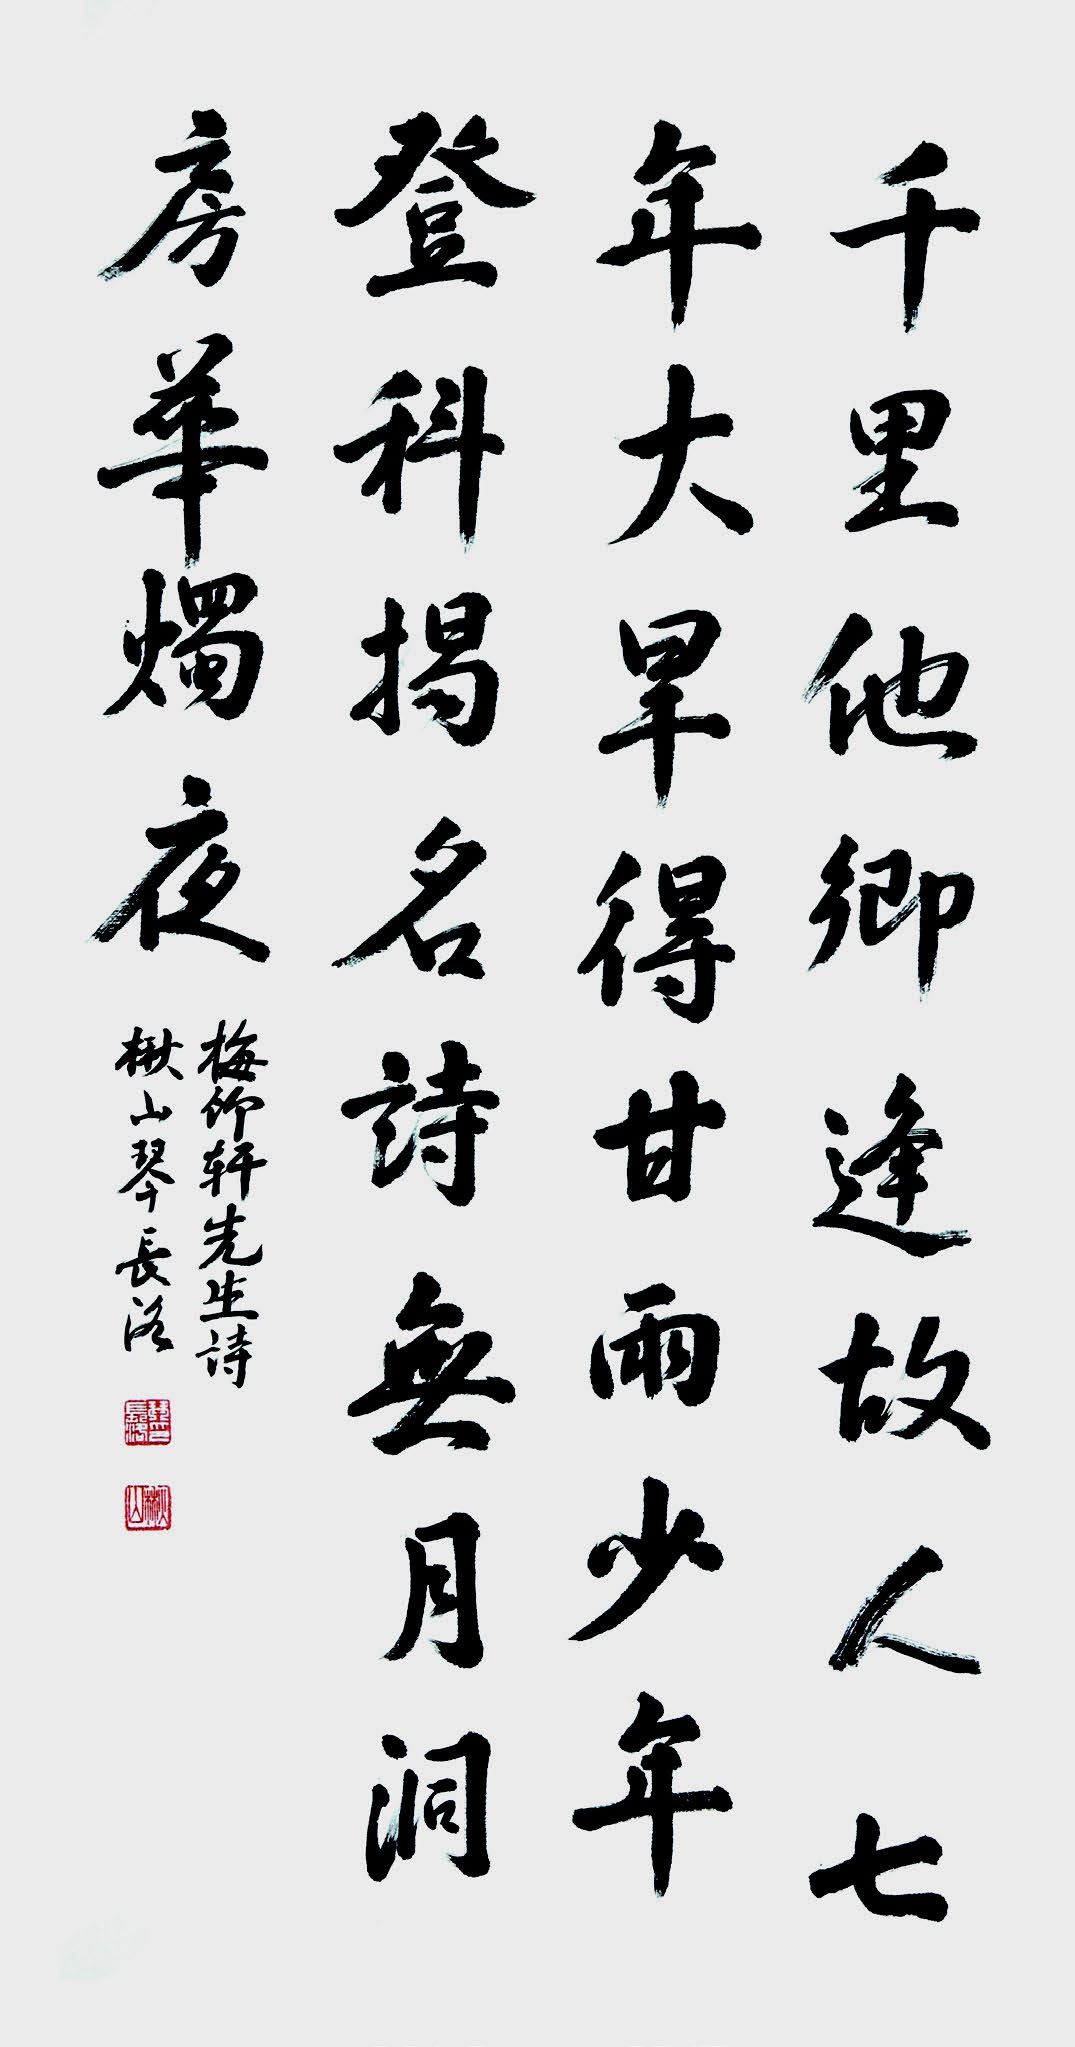 千里他鄉逢故人七
年大旱得甘雨少年
登科揭名詩無月洞
房華燭夜
梅仰軒先生詩
楸山琴長洛
楸山